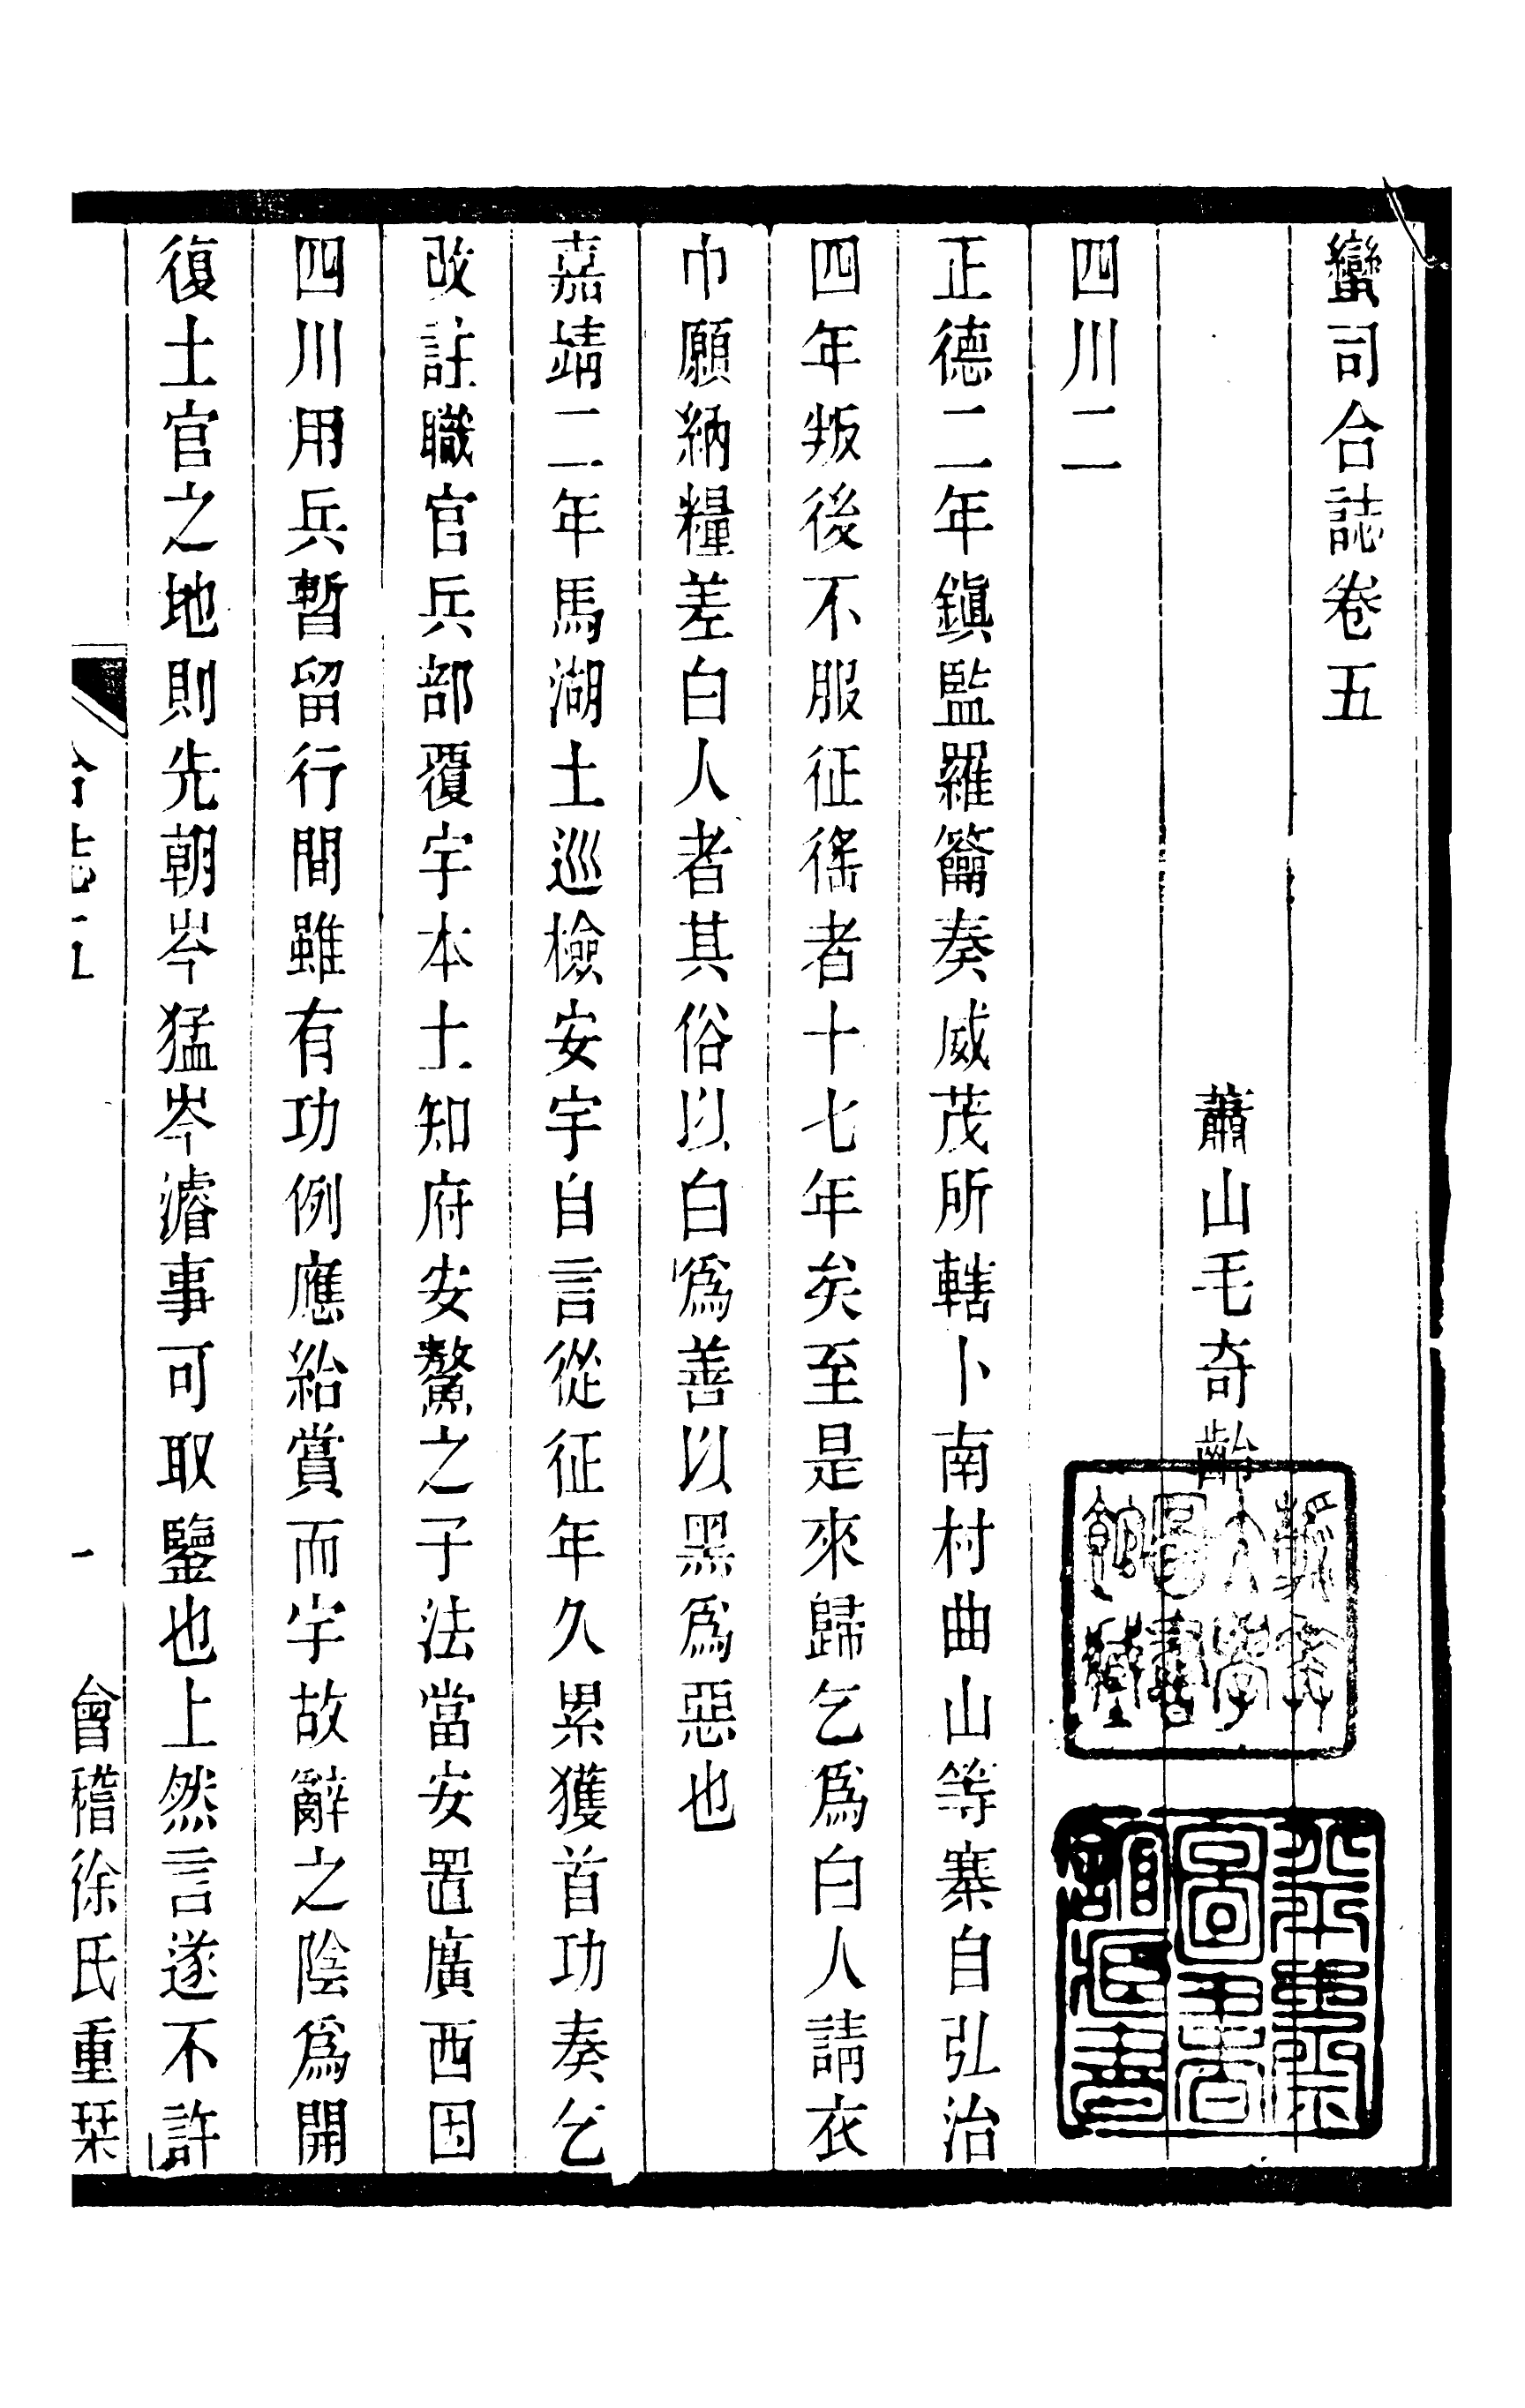 蠻司合誌卷五
蕭山毛奇齡
四川二
正德二年鎮監羅籥奏威茂所轄卜南村曲山等寨自弘治
四年叛後不服征徭者十七年矣至是來歸乞爲白人請衣
巾願納糧差白人者其俗以白爲善以黑爲惡也
嘉靖二年馬湖土巡檢安宇自言從征年久累獲首功奏乞
改註職官兵部覆宇本土知府安鰲之子法當安置廣西因
四川用兵暫留行間雖有功例應給賞而宇故辭之陰爲開
復土官之地則先朝岑猛岑濬事可取鑒也上然言遂不許
合誌五 一 會稽徐氏重栞